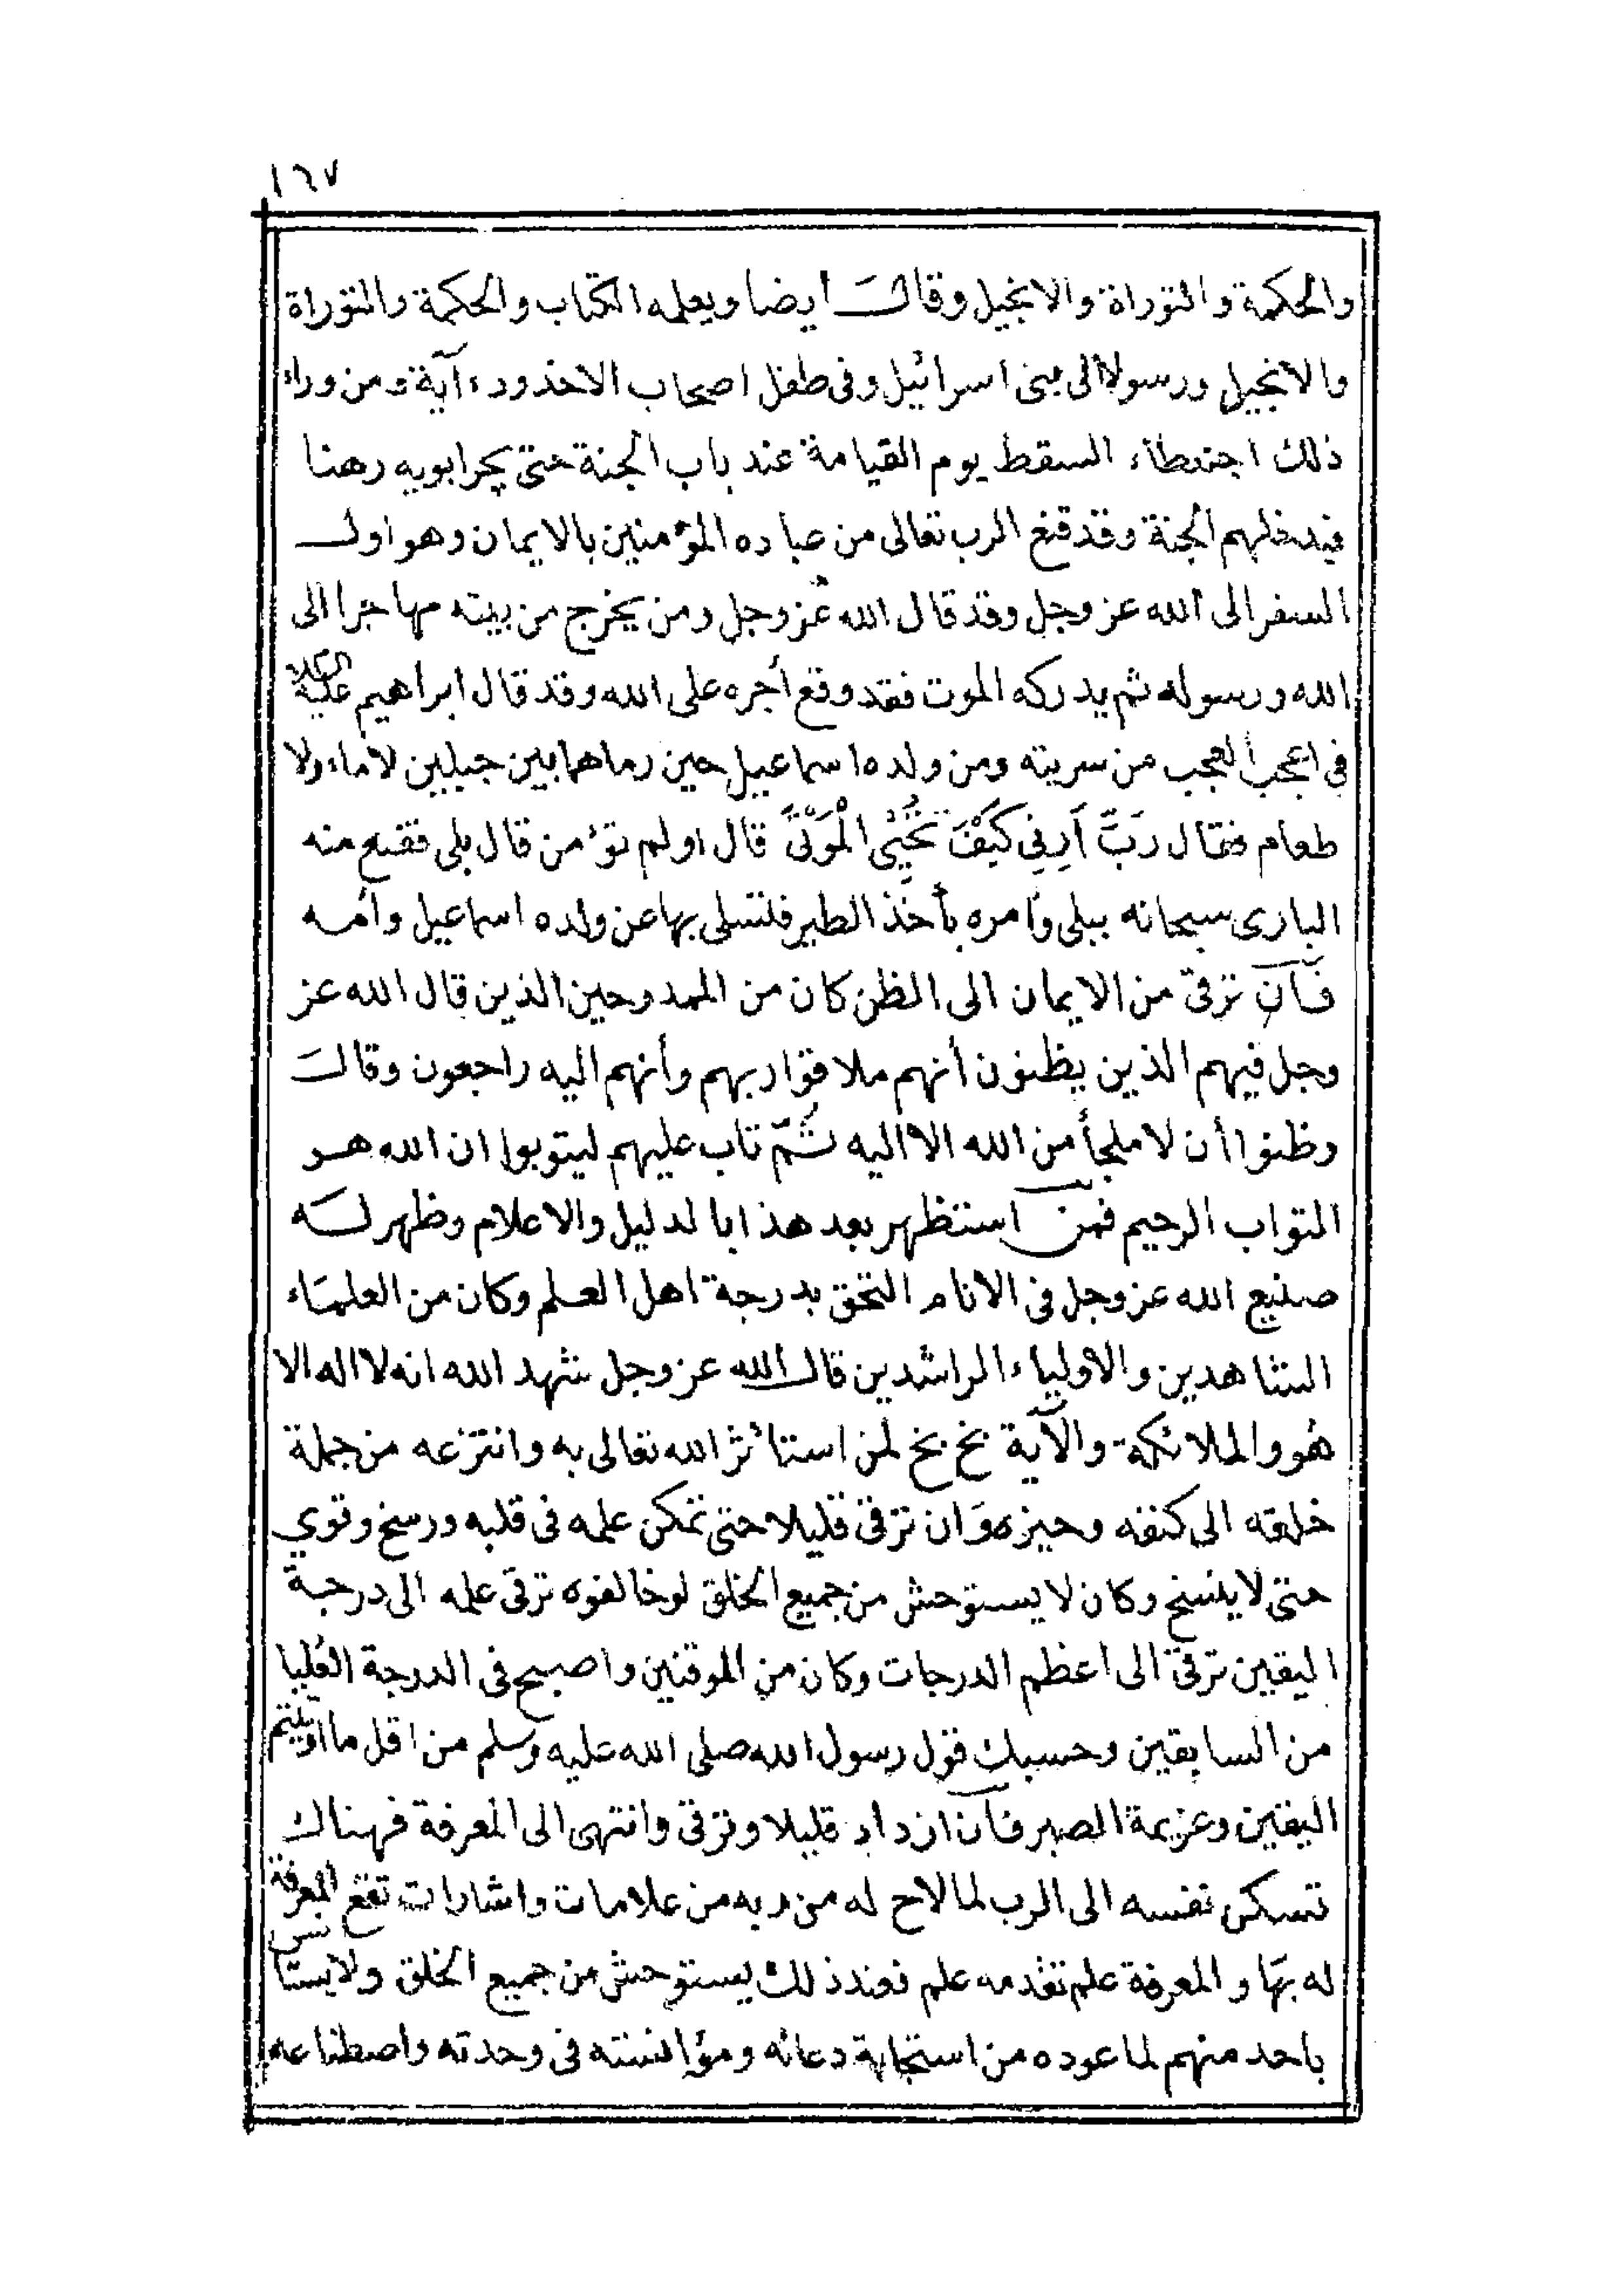 ١٦٧
والحكمة والتوراة والانجيل وقال ايضا ويعلمه الكتاب والحكمة والتوراة
والانجيل ورسولا الى بنى اسرائيل وفى طفل اصحاب الاخدود آية ومن وراء
ذلك احبنطاء السقط يوم القيامة عند باب الجنة حتى يجر ابويه رهنا
فيدخلهم الجنة وقد قنع الرب تعالى من عباده المؤمنين بالايمان وهو اول
السفر الى الله عز وجل وقد قال الله عز وجل ومن يخرج من بيته مهاجرا الى
الله ورسوله ثم يدركه الموت فقد وقع أجره على الله وقد قال ابراهيم عليه السلام
فى اعجب العجب من سريته ومن ولده اسماعيل حين رماهما بين جبلين لا ماء ولا
طعام فقال رَبِّ أَرِنِى كَيْفَ تُحْيِى الْمَوْتَى قال اولم تؤمن قال بلى فقنع منه
البارى سبحانه ببلى وأمره بأخذ الطير فلتسلى بها عن ولده اسماعيل وأمه
فان ترقى من الايمان الى الظن كان من الممدوحين الذين قال الله عز
وجل فيهم الذين يظنون أنهم ملاقوا ربهم وأنهم اليه راجعون وقال
وظنوا أن لا ملجأ من الله الا اليه ثُمّ تاب عليهم ليتوبوا ان الله هو
التواب الرحيم فمن استظهر بعد هذا بالدليل والاعلام وظهر له
صنيع الله عز وجل فى الانام التحق بدرجة اهل العلم وكان من العلماء
الشاهدين والاولياء الراشدين قال الله عز وجل شهد الله انه لا اله الا
هو والملائكة والآية بخ بخ لمن استأثر الله تعالى به وانتزعه من جملة
خلقه الى كنفه وحيزه وَان ترقى قليلا حتى تمكن علمه فى قلبه ورسخ وقوي
حتى لا ينسخ وكان لا يستوحش من جميع الخلق لو خالفوه ترقى علمه الى درجة
اليقين ترقى الى اعظم الدرجات وكان من الموقنين واصبح فى الدرجة العُليا
من السابقين وحسبك قول رسول الله صلى الله عليه وسلم من اقل ما اوتيتم
اليقين وعزيمة الصبر فان ازداد قليلا وترقى وانتهى الى المعرفة فهناك
تسكن نفسه الى الرب لما لاح له من ربه من علامات واشارات تقع المعرفة
له بها والمعرفة علم تقدمه علم فعند ذلك يستوحش من جميع الخلق ولا يستأنس
باحد منهم لما عوده من استجابة دعائه ومؤانسته فى وحدته واصطناعه